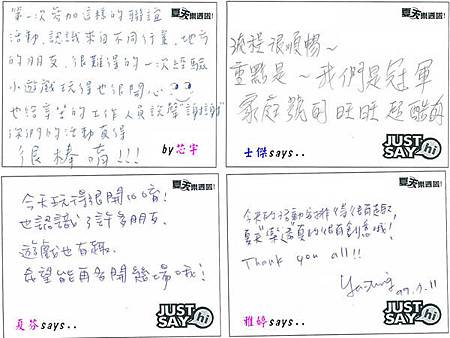 第一次參加這樣的聯誼
活動,認識來自不同行業、地方
的朋友,很難得的一次經驗
小遊戲玩得也很開心
也給辛苦的工作人員說聲"謝謝"
你們的活動真得
很棒唷!!!
by芯宇
夏天樂逍遙!
流程很順暢~
重點是~我們是冠軍
家庭號的旺旺超酷的
JUST
SAY hi
士傑says..
夏天樂逍遙!
今天玩得很開心唷!
也認識了許多朋友,
遊戲也有趣,
希望能再多開幾場哦!
JUST
SAY hi
夏芬says..
夏天樂逍遙!
今天的活動安排得很有趣,
Thank you all!!
JUST
SAY hi
雅婷says..